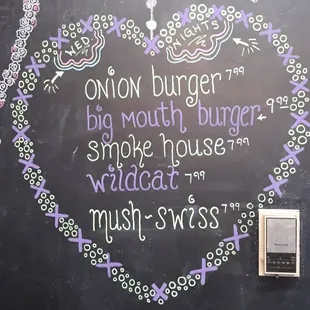 WED NIGHTS
ONiON burger 7.99
big MOUTH burger 9.99
smoke house 7.99
wildcat 7.99
mush-swiss 7.99